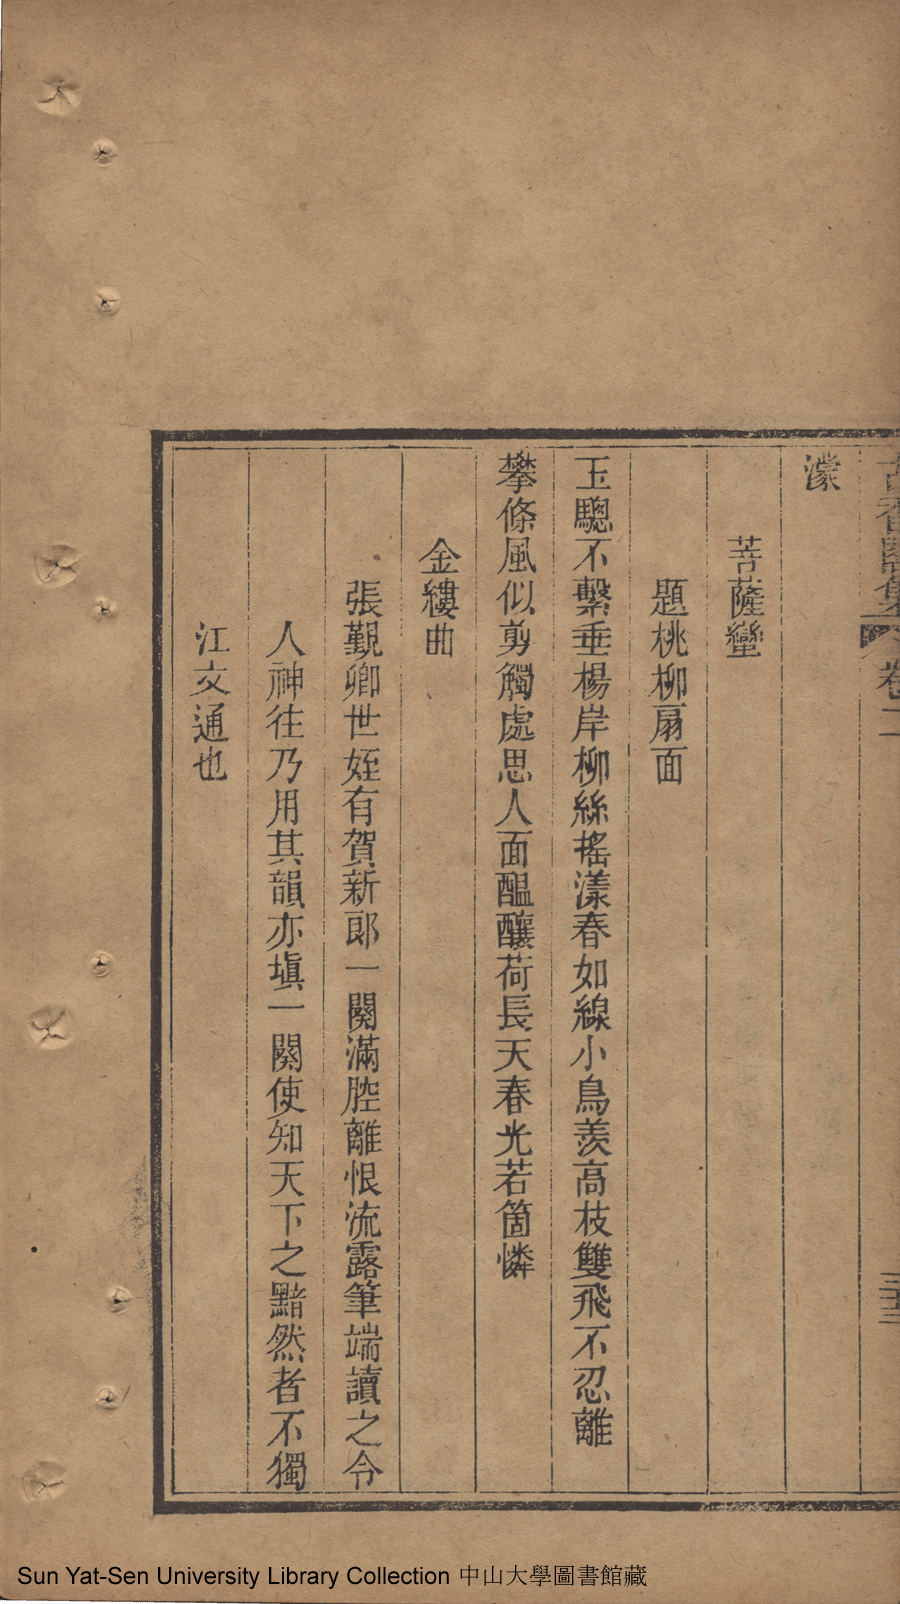 古香閣集 卷二 三三
濛
菩薩蠻
題桃柳扇面
玉驄不繫垂楊岸柳絲搖漾春如線小鳥羨高枝雙飛不忍離
攀條風似剪觸處思人面醞釀荷長天春光若箇憐
金縷曲
張覲卿世姪有賀新郎一闋滿腔離恨流露筆端讀之令
人神往乃用其韻亦塡一闋使知天下之黯然者不獨
江文通也
Sun Yat-Sen University Library Collection 中山大學圖書館藏